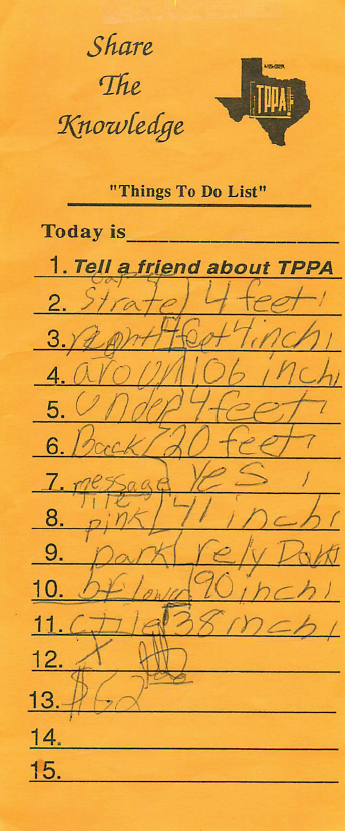 Share
The
Knowledge
TPPA
"Things To Do List"
Today is
1. Tell a friend about TPPA
2. Strate 4 feet
3. right 7 feet 4 inch
4. around 106 inch
5. under 4 feet
6. Back 20 feet
7. message yes
tile
8. pink 41 inch
9. park rely Dark
10. 90 inch
11. 38 inch
12. X
13. $62
14.
15.